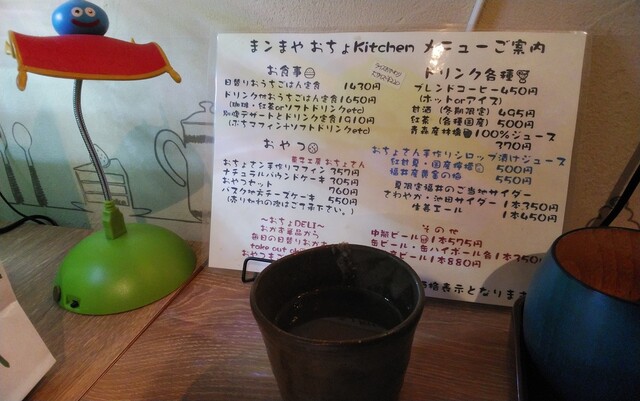 まンまや おちょKitchen メニューご案内
お食事
日替りおうちごはん定食 1430円
ドリンク付おうちごはん定食1650円
(珈琲・紅茶orソフトドリンクetc)
デザートとドリンク定食1910円
(ぷちマフィン+ソフトドリンクetc)
おやつ
おちょさん手作りマフィン 357円
ナチュラルパウンドケーキ 305円
おやつセット 760円
バスク地方チーズケーキ 550円
(売り切れの次はご了承下さい。)
～おちょDELI～
おかず単品から
毎日の日替りおかず
take out
ドリンク各種
ブレンドコーヒー450円
(ホットorアイス)
甘酒 (冬期限定) 495円
紅茶 (各種国産) 500円
青森産林檎100%ジュース
370円
おちょさん手作りシロップ漬けジュース
紅針夏・国産檸檬 500円
福井産黄金の梅 550円
夏限定福井のご当地サイダー
さわやか・池田サイダー 1本350円
生姜エール 1本450円
その他
中瓶ビール 1本575円
缶ビール・缶ハイボール各1本350
ビール1本880円
価格表示となります